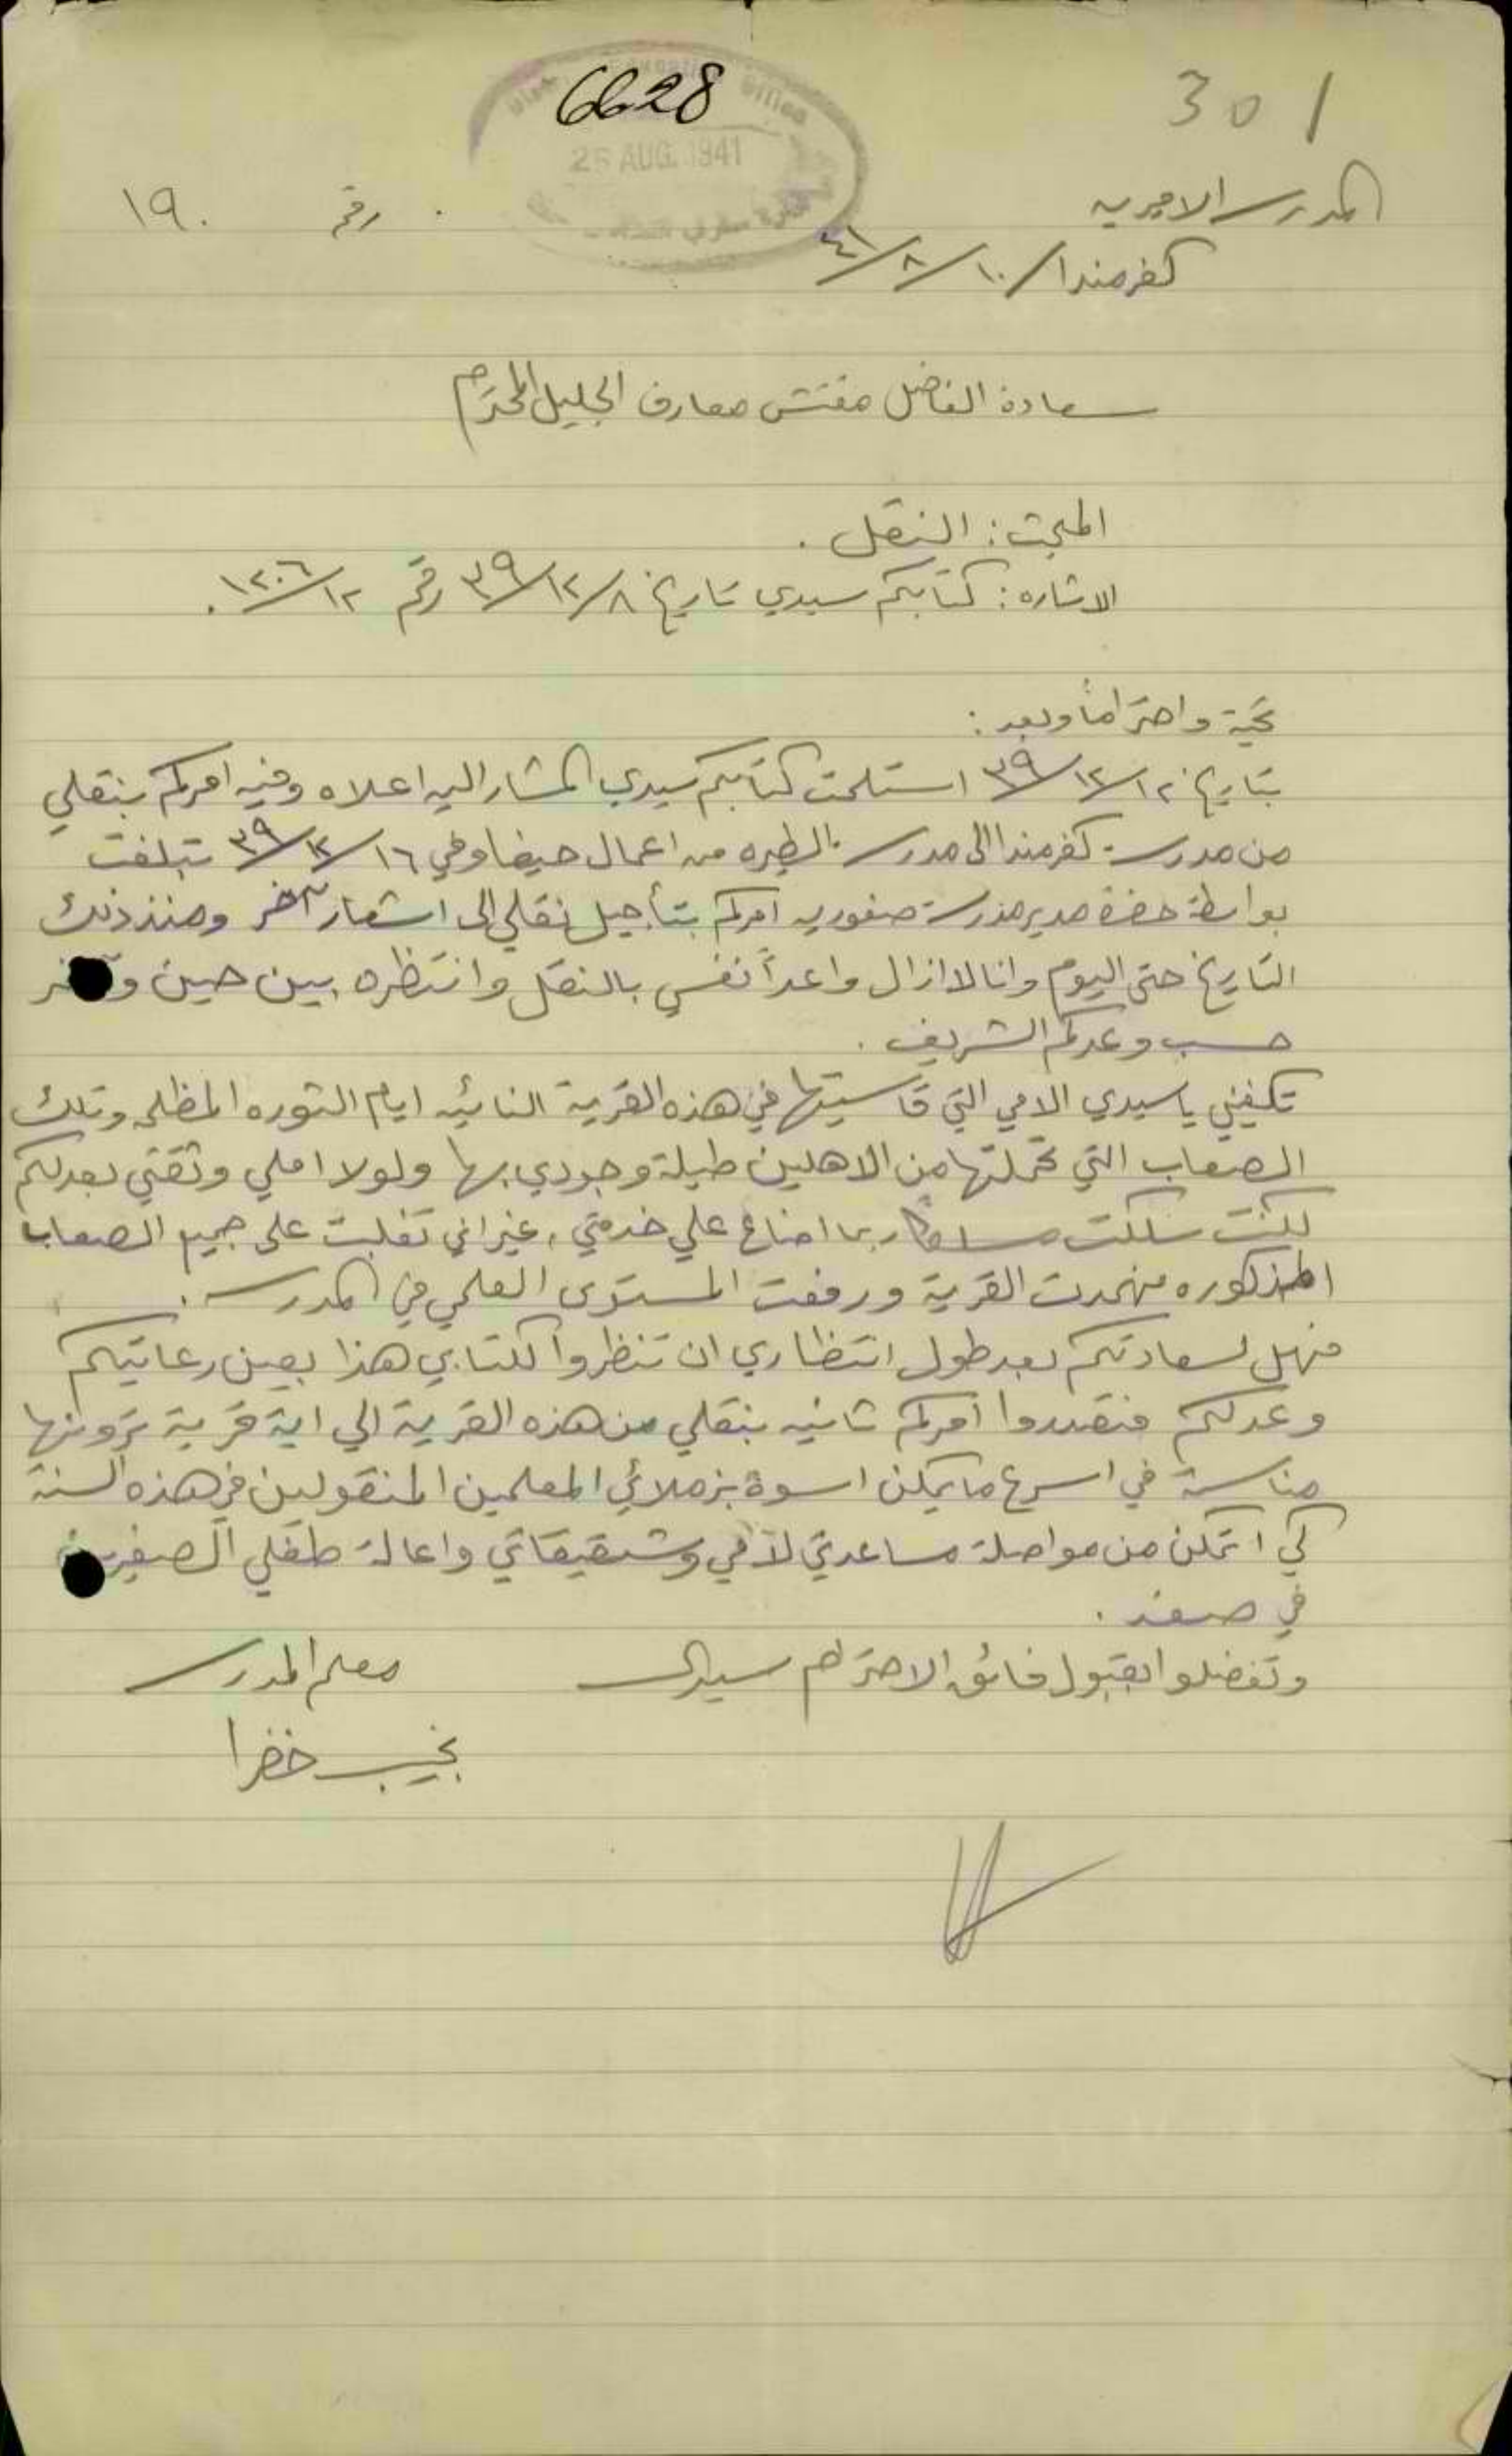 6628
301
Office
26 AUG. 1941
المدرسة الاميرية رقم ١٩٠
كفرمندا ١٠/٨/٤١
سعادة الفاضل مفتش معارف الجليل المحترم
المبحث: النقل.
الاشاره: كتابكم سيدي تاريخ ٨/١٢/٣٩ رقم ١٢/١٢٠٦.
تحية واحتراماً وبعد:
بتاريخ ١٢/١٢/٣٩ استلمت كتابكم سيدي المشار اليه اعلاه وفيه امركم بنقلي
من مدرسة كفرمندا الى مدرسة الطيره من اعمال حيفا وفي ١٦/١٢/٣٩ تبلغت
بواسطة حضرة مدير مدرسة صفوريه امركم بتأجيل نقلي الى اشعار آخر ومنذ ذلك
التاريخ حتى اليوم وانا لا ازال واعداً نفسي بالنقل وانتظره بين حين وآخر
حسب وعدكم الشريف.
تكفيني يا سيدي الامي التي قاسيتها في هذه القرية النائيه ايام الثوره المظلمه وتلك
الصعاب التي تحملتها من الاهلين طيلة وجودي بها ولولا املي وثقتي بعدلكم
لكنت سلكت ربما اضاع علي خدمتي، غير اني تغلبت على جميع الصعاب
المذكوره القرية ورفعت المستوى العلمي في المدرسة.
فهل لسعادتكم بعد طول انتظاري ان تنظروا لكتابي هذا بعين رعايتكم
وعدلكم فتصدروا امركم ثانيه بنقلي من هذه القرية الى اية قرية ترونها
مناسبة في اسرع ما يمكن اسوة بزملائي المعلمين المنقولين في هذه السنة
كي اتمكن من مواصلة مساعدتي لأمي وشقيقاتي واعالة طفلي الصغيرين
في صفد.
وتفضلوا بقبول فائق الاحترام سيدي معلم المدرسة
نجيب خضرا